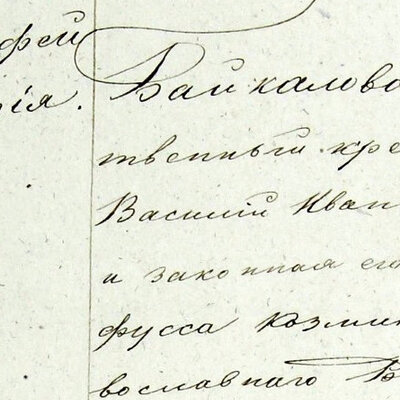 фей
ія.
Байкалово
твенный кре
Василій Иван
и законная ег
фусса Козми
вославнаго В